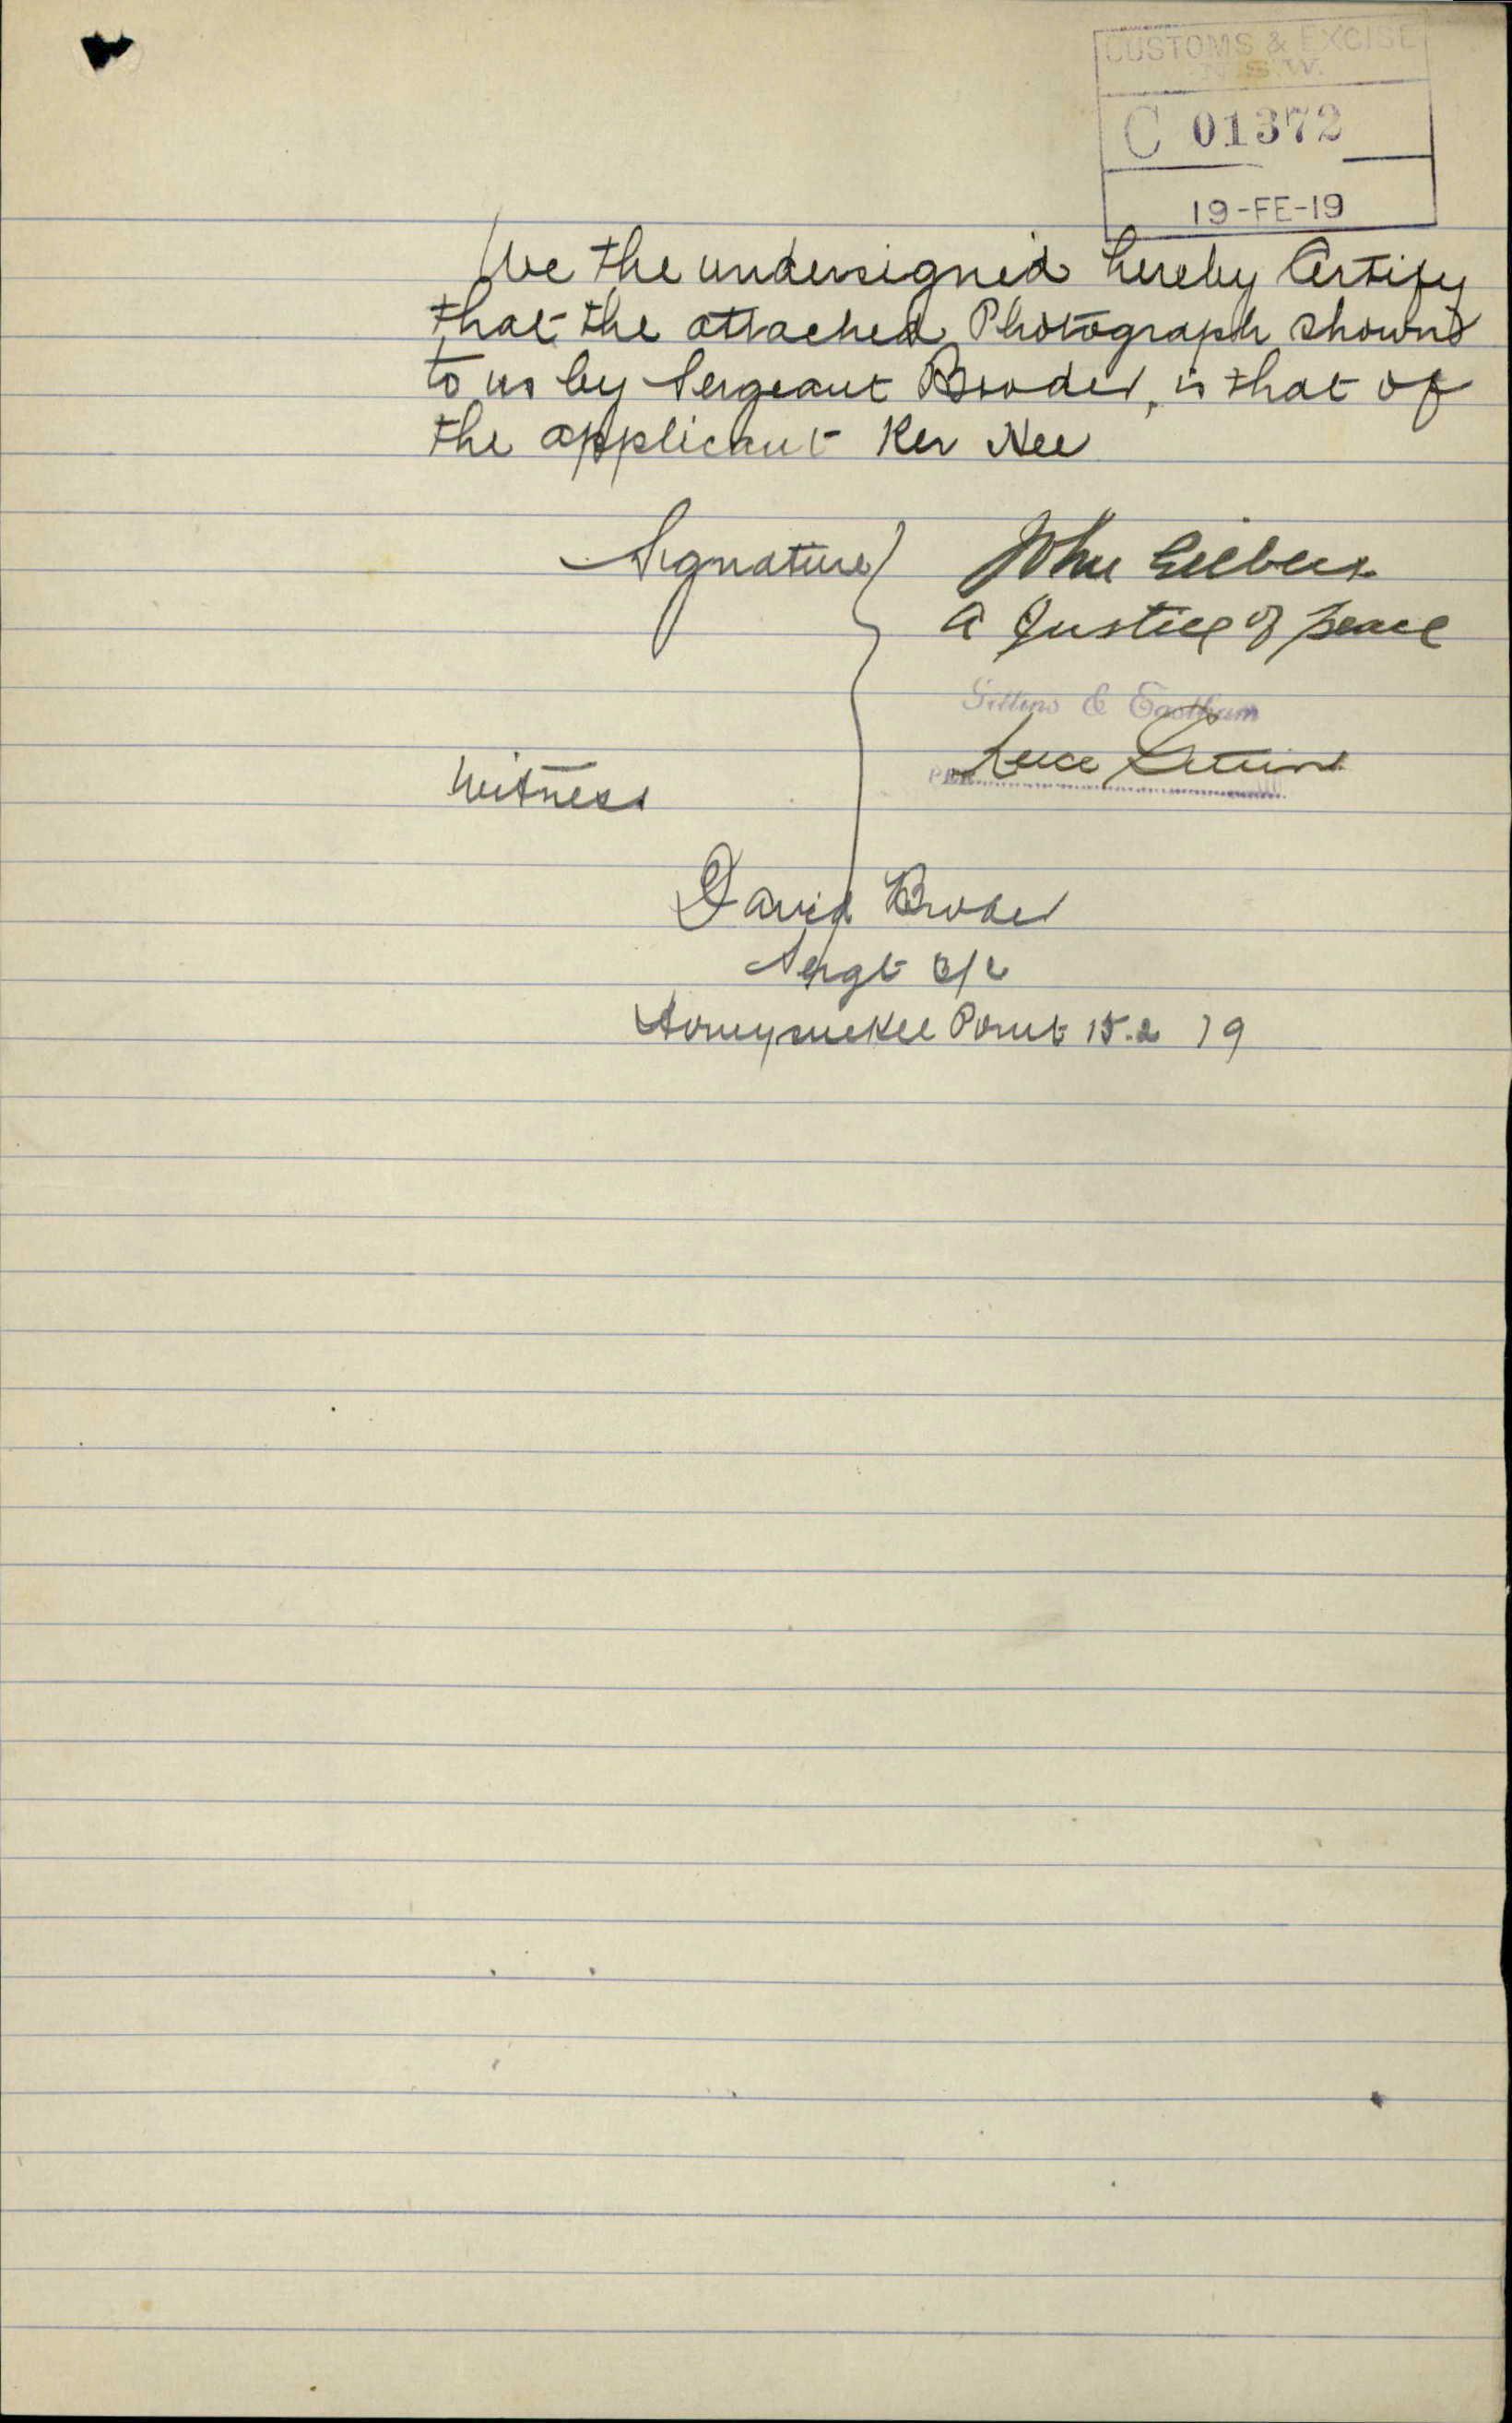 CUSTOMS & EXCISE
N.S.W.
C 01372
19-FE-19
We the undersigned hereby Certify
that the attached Photograph shown
to us by Sergeant Broder, is that of
the applicant Ker Nee
Signature John Gilbert
a Justice of peace
Gittins & Eastham
PER Gittins
Witness
David Broder
Sergt
Honeysuckle Point 15.2 19